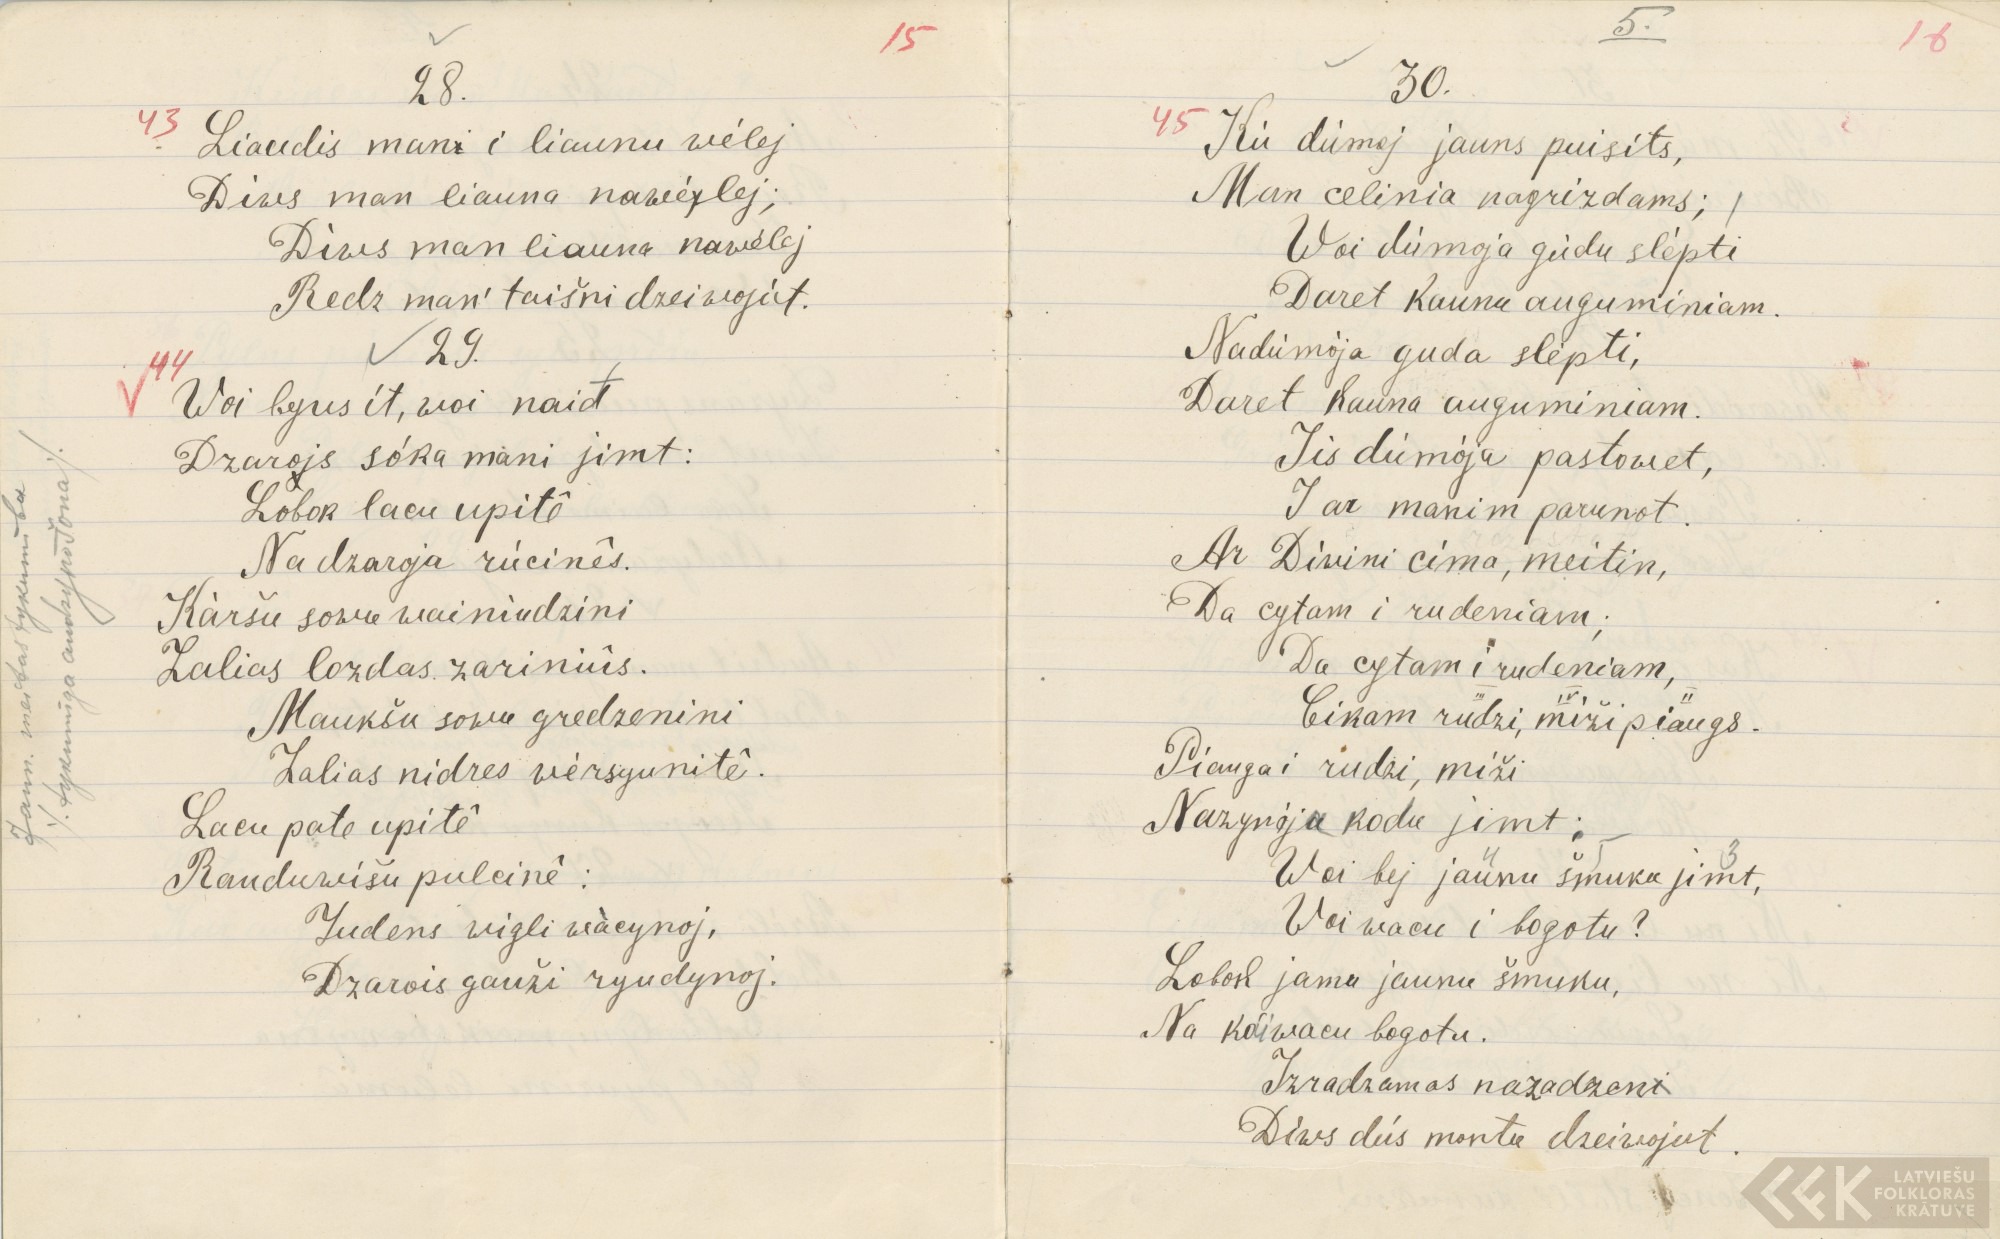 15
28.
43
Liaudis mani i liaunu wélej
Diws man liauna nawélej;
Diws man liauna nawélej
Redz man' taišni dzeiwojút.
29.
44
Woi byus ít, woi naid
Dzarojs sóka mani jimt:
Lobok lacu upitê
Na dzaroja rúcinês.
Kàršu sowu wainiudzini
Zalias lozdas zariniûs.
Maukšu sowu gredzenini
Zalias nidres wérsyunitê.
Lacu pate upitê
Rauduwišu pulcinê:
Yudens wigli wàcynoj,
Dzarois gauži ryudynoj.
Jaun. meitas
5.
16
30.
45
Kú dúmoj jauns puisíts,
Man celinia nagrizdams;
Woi dúmoja gúdu slépti
Daret kaunu auguminiam.
Nadúmója guda slépti,
Daret kauna auguminiam.
Jis dúmója pastowet,
I ar manim parunot.
Ar Diwini címa, meitin,
Da cytam i rudeniam;
Da cytam i rudeniam,
Cikam rudzi, miži piaugs.
Piauga i rudzi, miži
Nazynója kodu jimt:
Woi bej jaunu šmuku jimt,
Woi wacu i bogotu?
Lobok jamu jaunu šmuku,
Na kói wacu bogotu.
Izradzamas nazadzeni
Diws dús montu dzeiwojut.
LATVIEŠU
FOLKLORAS
KRĀTUVE